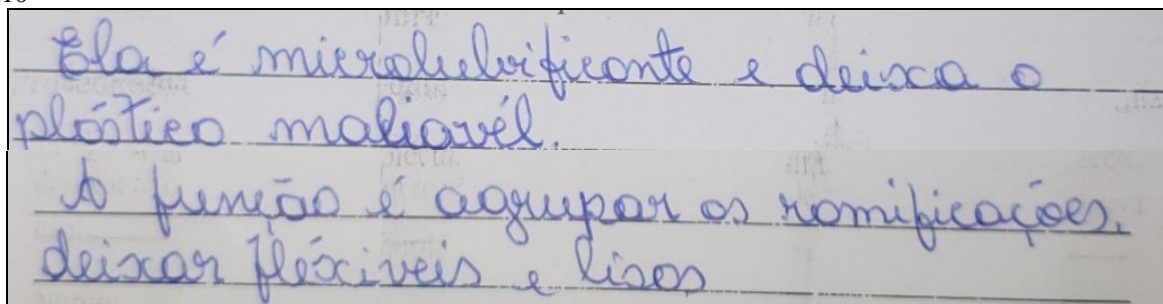 Ela é microlubrificante e deixa o
plástico maliavél.
A função é agrupar as ramificações,
deixar fléxiveis e lisas